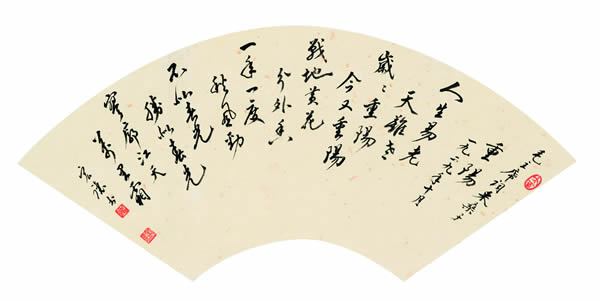 毛主席詞采桑子
重陽
一九二九年十月
人生易老
天難老
歲々重陽
今又重陽
戰地黄花
分外香
一年一度
秋風勁
不似春光
勝似春光
寥廓江天
萬里霜